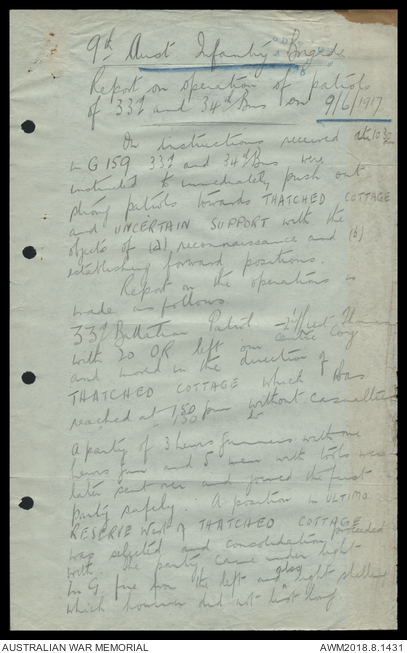 9th Aust Infantry Brigade
Report on operation of patrols
of 33rd and 34th Bns on 9/6/1917
On instructions received at 10.30
in G 159 33rd and 34th Bns were
instructed to immediately push out
strong patrols towards THATCHED COTTAGE
and UNCERTAIN SUPPORT with the
objects of (a) reconnaissance and (b)
establishing forward positions.
Report on the operations is
made as follows
33rd Battalion Patrol - 2/Lieut
with 20 OR left our centre Coy
and moved in the direction of
THATCHED COTTAGE which was
reached at 1.50 pm without casualties
A party of 3 Lewis gunners with one
Lewis gun and 5 men with tools were
later sent over and joined the first
party safely. A position in ULTIMO
RESERVE West of THATCHED COTTAGE
was selected and consolidation proceeded
with. The party came under light
M G fire from the left and also light shelling
which however did not last long
AUSTRALIAN WAR MEMORIAL
AWM2018.8.1431